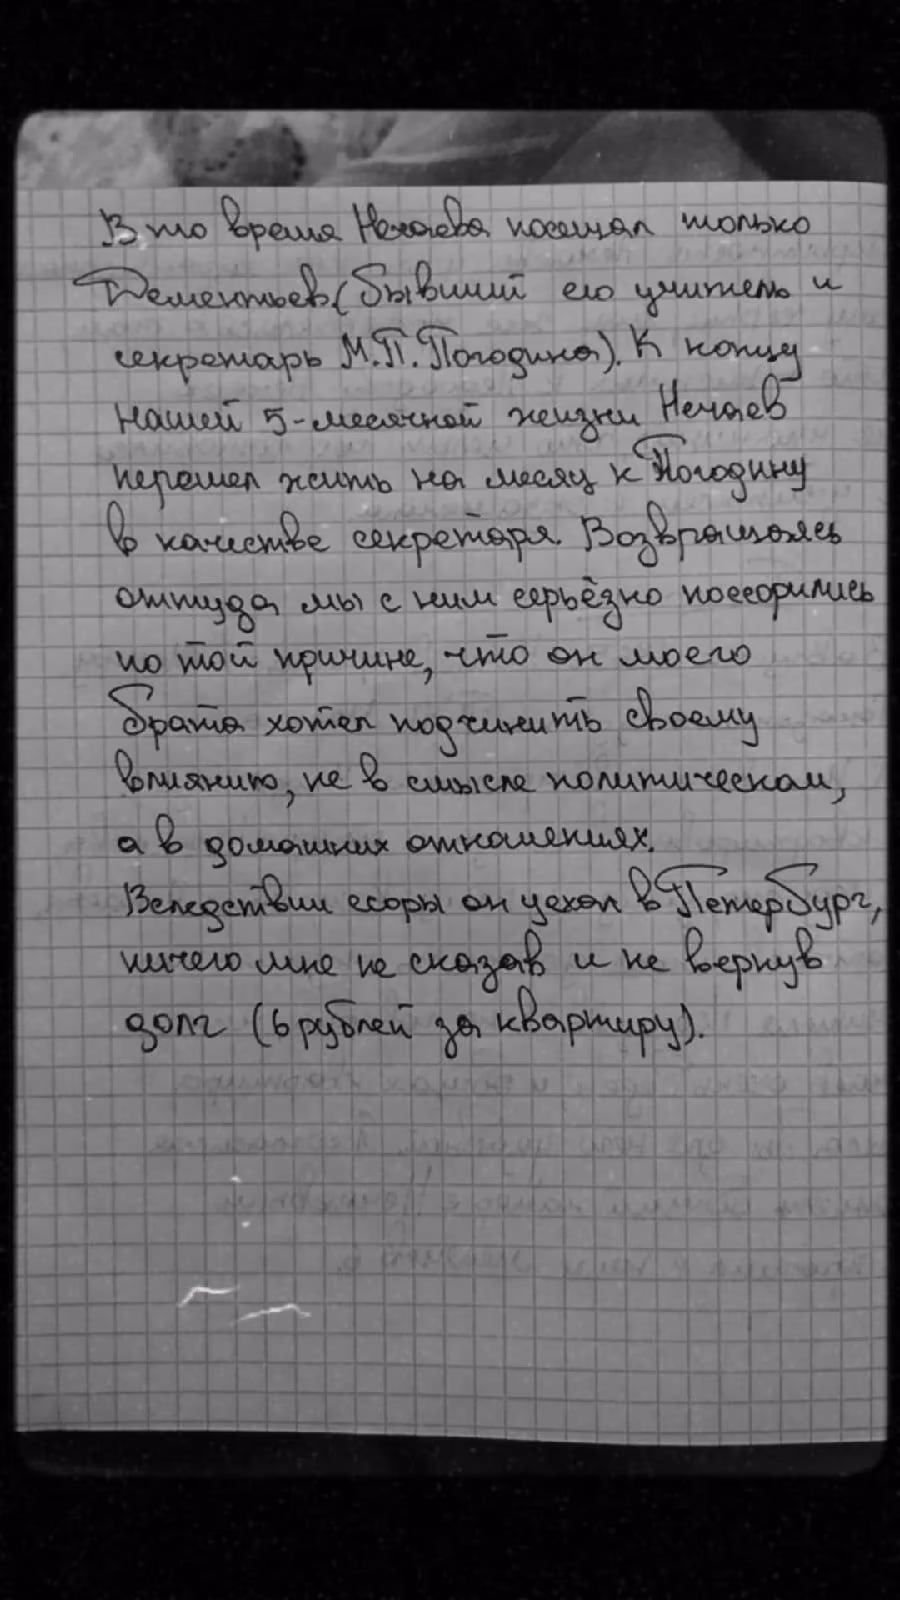 В то время Нечаева посещал только
Дементьев (бывший его учитель и
секретарь М.П. Погодина). К концу
нашей 5-месячной жизни Нечаев
перешел жить на месяц к Погодину
в качестве секретаря. Возвращаясь
оттуда, мы с ним серьёзно поссорились
по той причине, что он моего
брата хотел подчинить своему
влиянию, не в смысле политическом,
а в домашних отношениях.
Вследствии ссоры он уехал в Петербург,
ничего мне не сказав и не вернув
долг (6 рублей за квартиру).